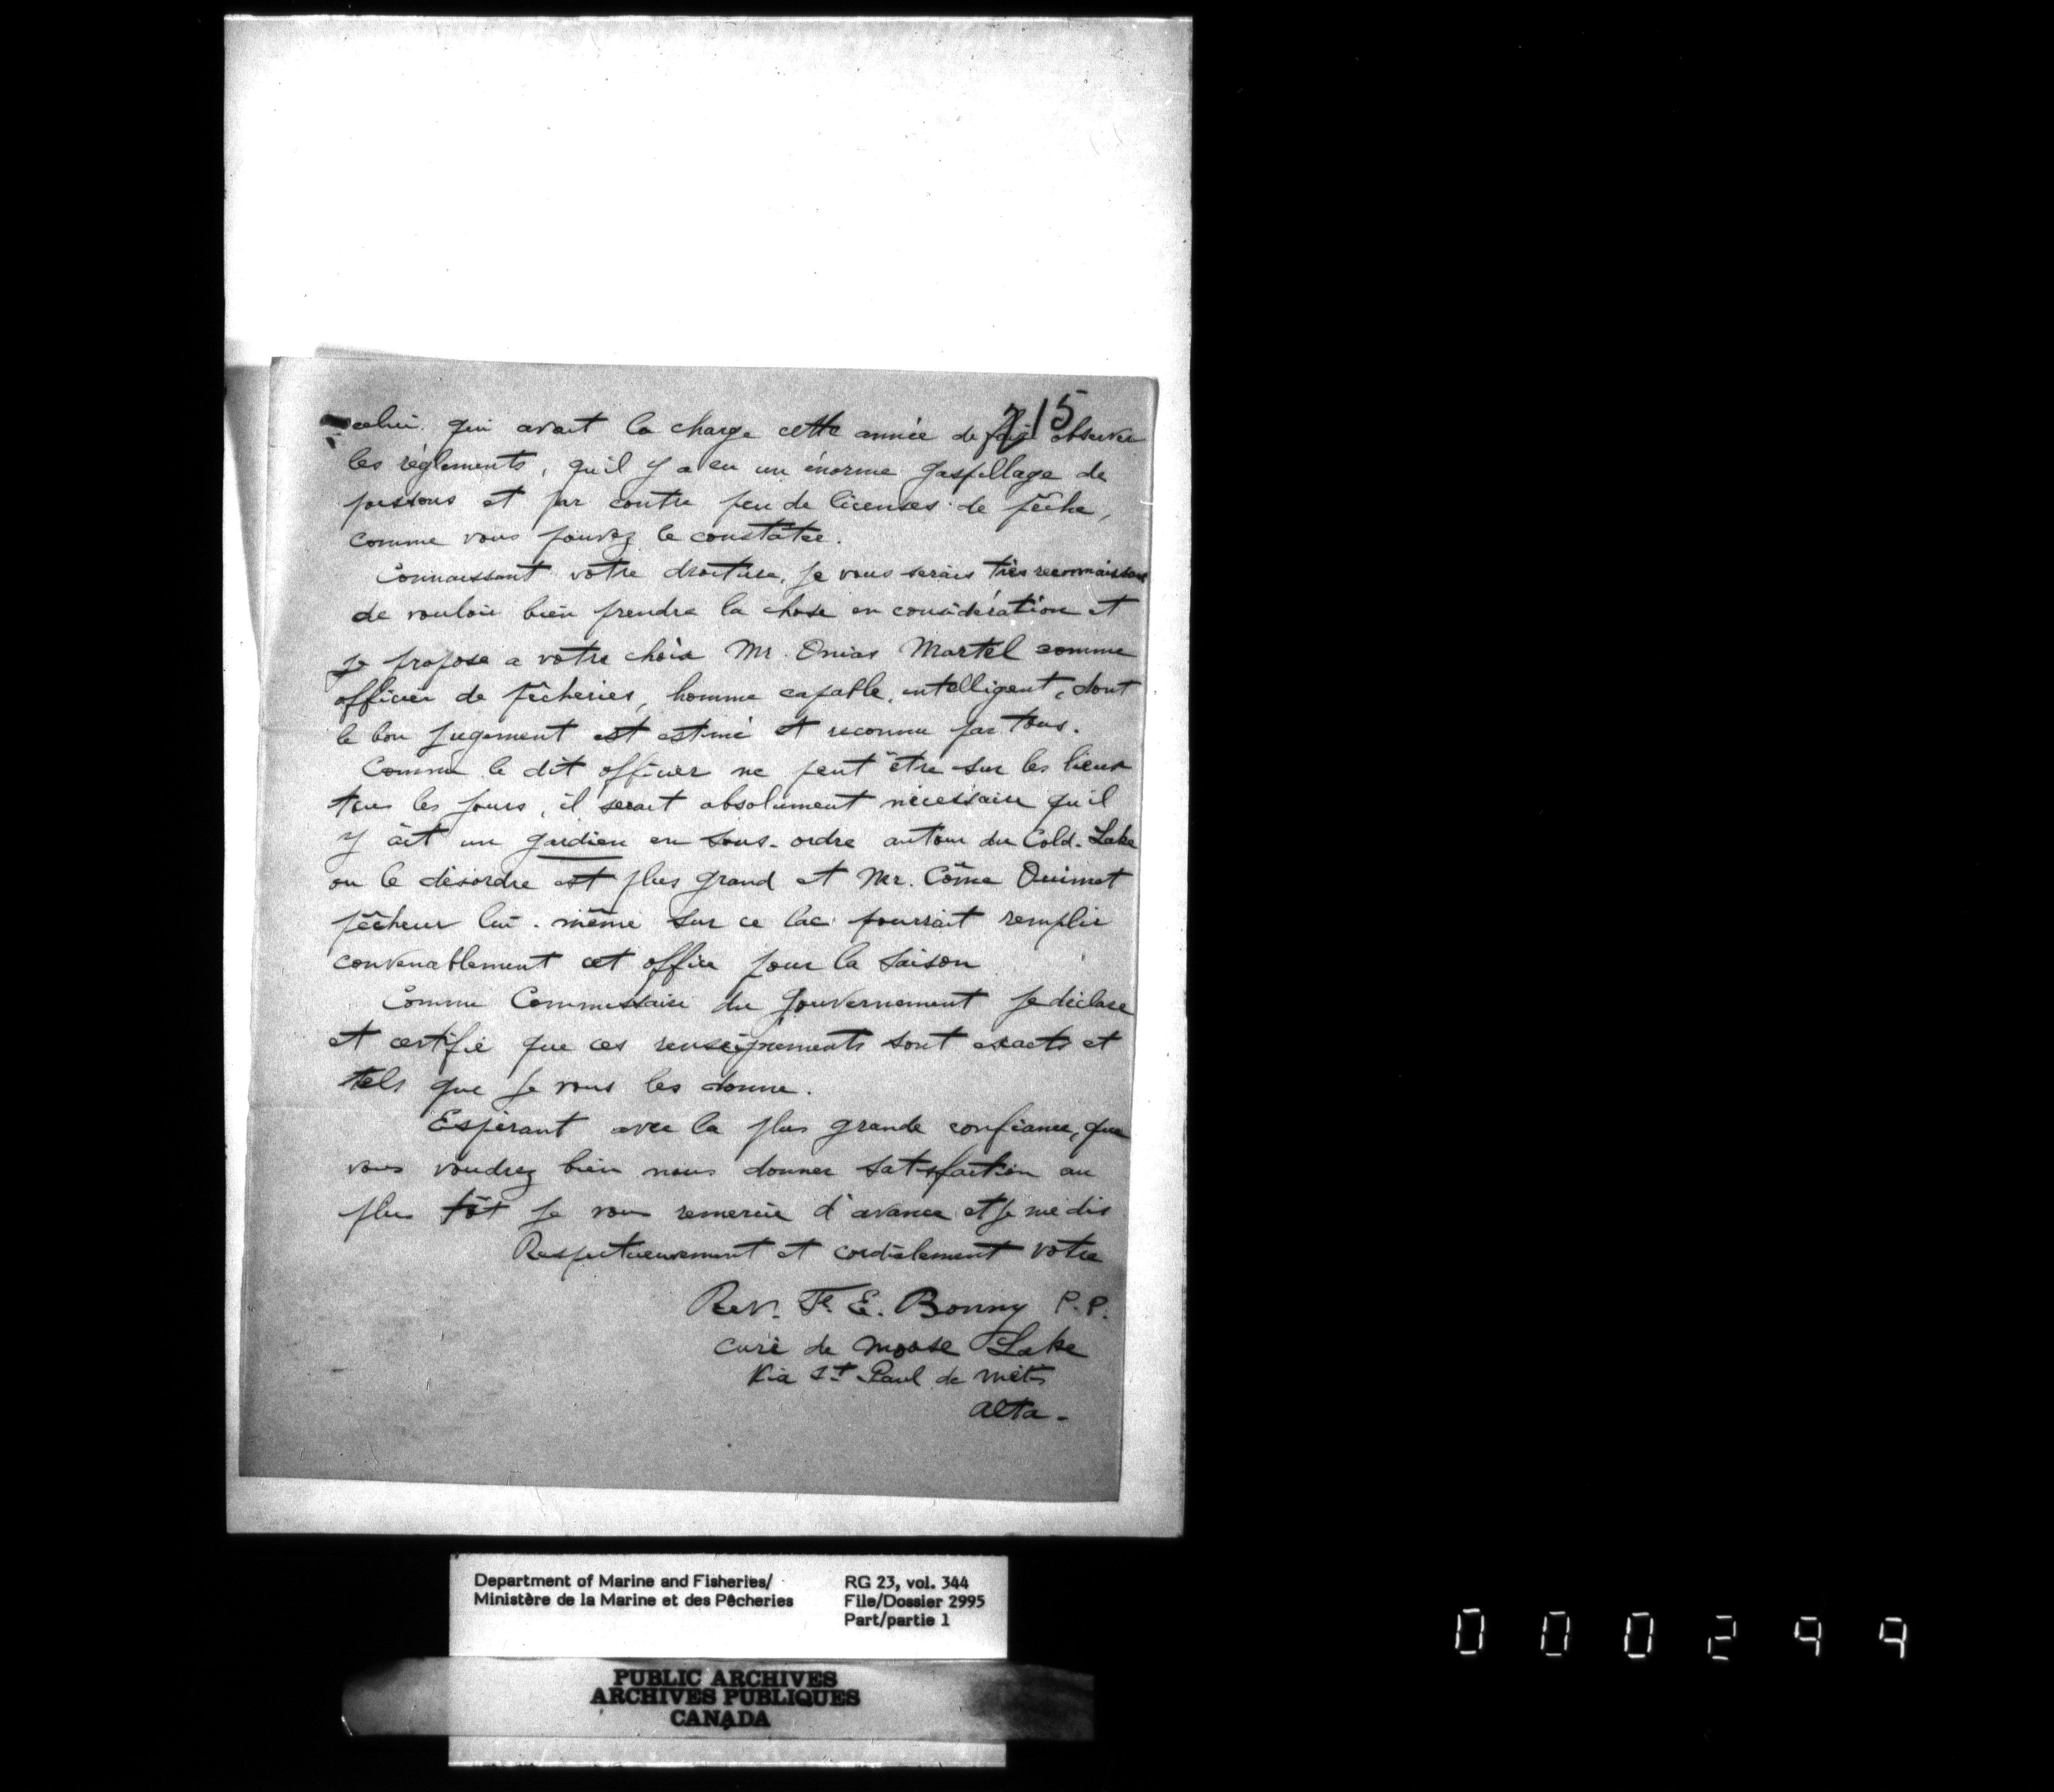 215
celui qui avait la charge cette année de faire observer
les règlements, qu'il y a eu un énorme gaspillage de
poissons et par contre peu de licenses de pêche,
comme vous pouvez le constater.
Connaissant votre droiture, je vous serais très reconnaissant
de vouloir bien prendre la chose en considération et
je propose a votre choix Mr. Onias Martel comme
officier de pêcheries, homme capable, intelligent, dont
le bon jugement est estimé et reconnu par tous.
Comme le dit officier ne peut être sur les lieux
tous les jours, il serait absolument nécessaire qu'il
y ait un gardien en sous-ordre autour du Cold-Lake
ou le désordre est plus grand et Mr. Côme Ouimet
pêcheur lui-même sur ce lac pourrait remplir
convenablement cet office pour la saison
Comme Commissaire du Gouvernement je déclare
et certifie que ces renseignements sont exacts et
tels que je vous les donne.
Espérant avec la plus grande confiance, que
vous voudrez bien nous donner satisfaction au
plus tôt je vous remercie d'avance et je me dis
Respectueusement et cordialement votre
Rev. F. E. Bonny P.P.
curé de Moose Lake
Via St Paul de Métis
Alta-
Department of Marine and Fisheries/
Ministère de la Marine et des Pêcheries
RG 23, vol. 344
File/Dossier 2995
Part/partie 1
PUBLIC ARCHIVES
ARCHIVES PUBLIQUES
CANADA
000299